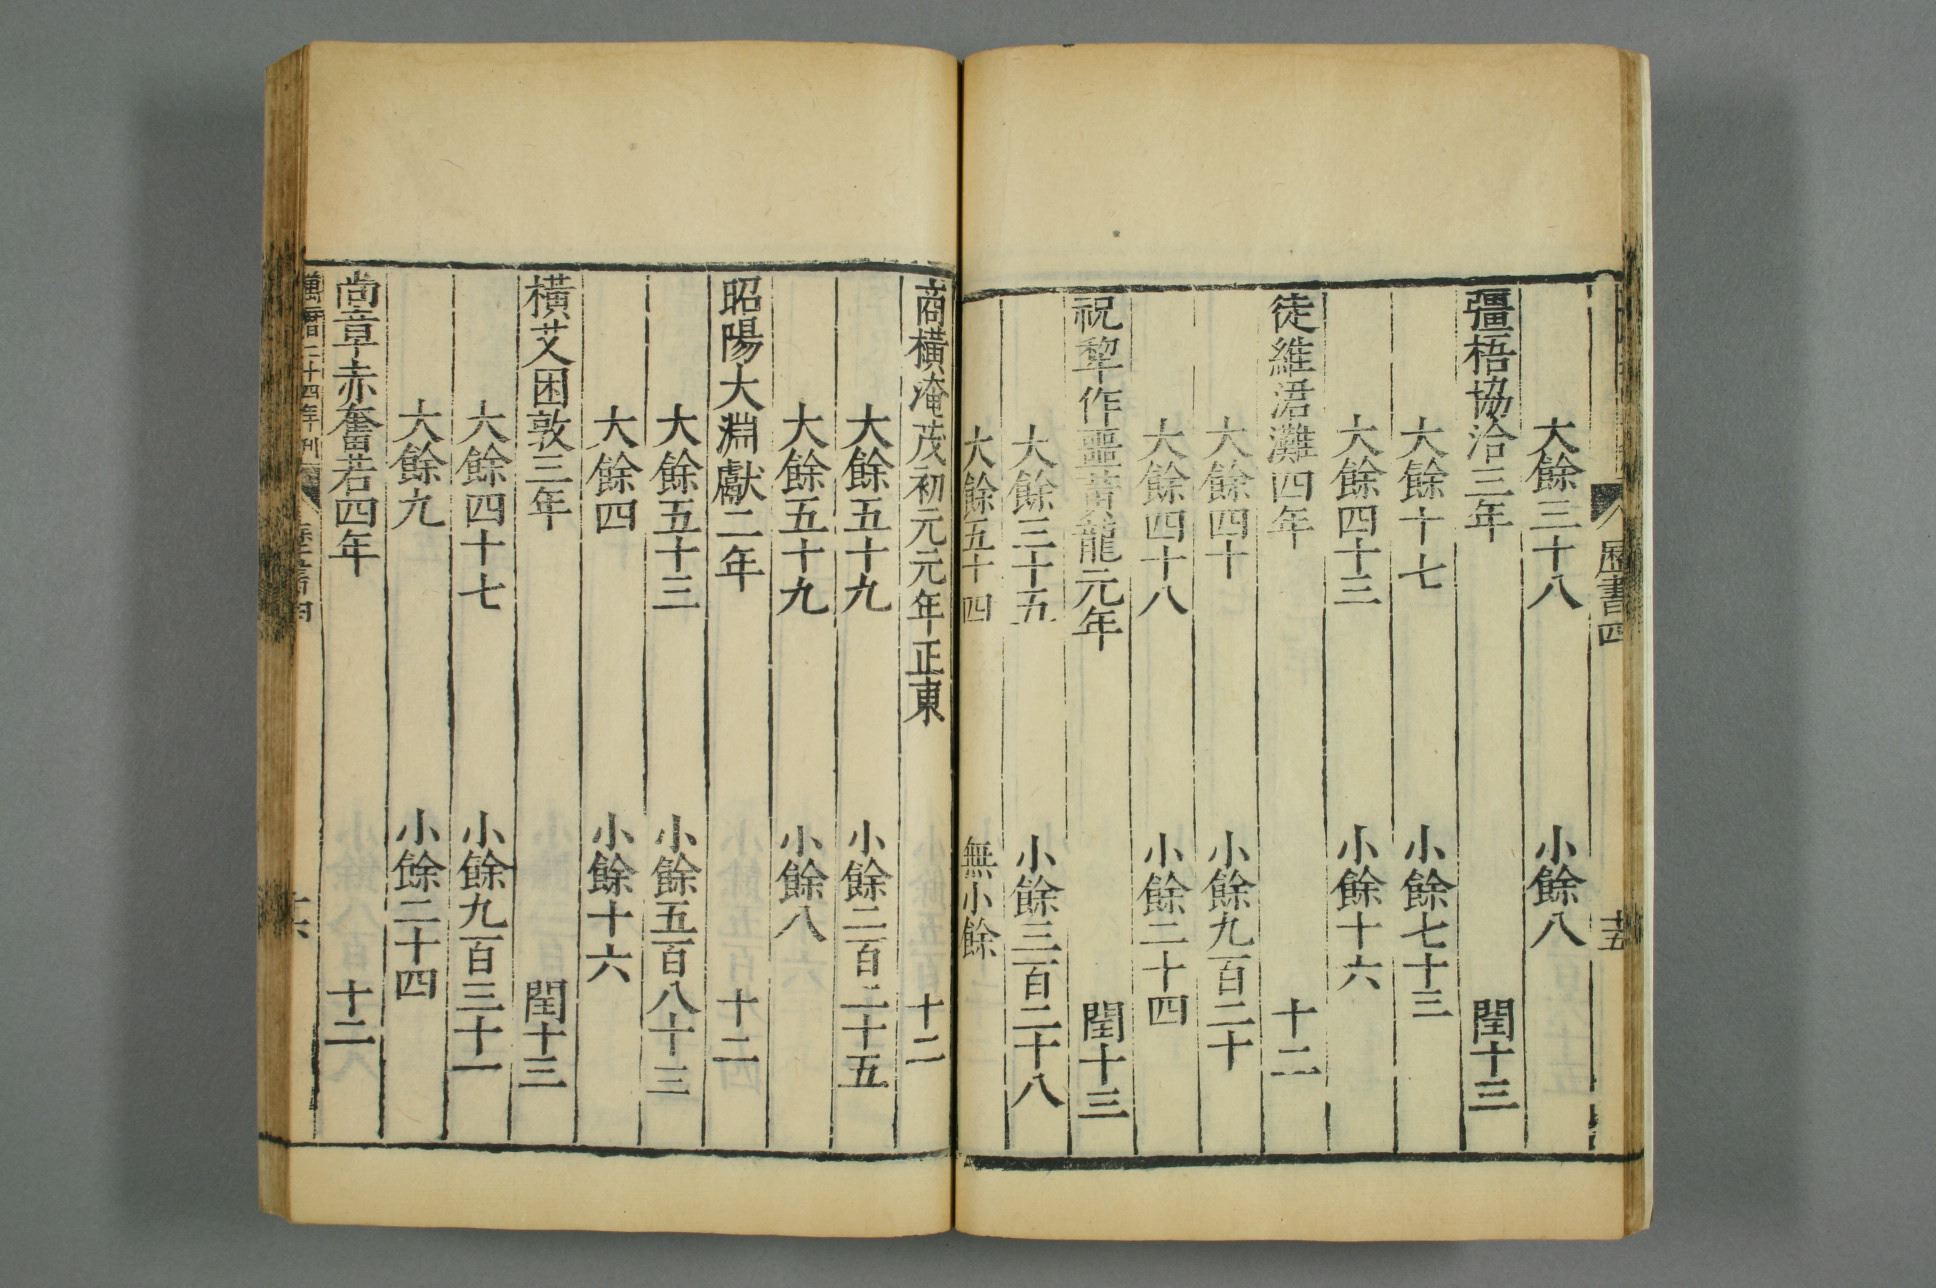 曆書四
十五
大餘三十八 小餘八
彊梧協洽三年 閏十三
大餘十七 小餘七十三
大餘四十三 小餘十六
徒維涒灘四年 十二
大餘四十 小餘九百二十
大餘四十八 小餘二十四
祝犂作噩黃龍元年 閏十三
大餘三十五 小餘三百二十八
大餘五十四 無小餘
商橫淹茂初元元年正東 十二
大餘五十九 小餘二百二十五
大餘五十九 小餘八
昭陽大淵獻二年 十二
大餘五十三 小餘五百八十三
大餘四 小餘十六
橫艾困敦三年 閏十三
大餘四十七 小餘九百三十一
大餘九 小餘二十四
尚章赤奮若四年 十二
萬曆二十四年刊
十六